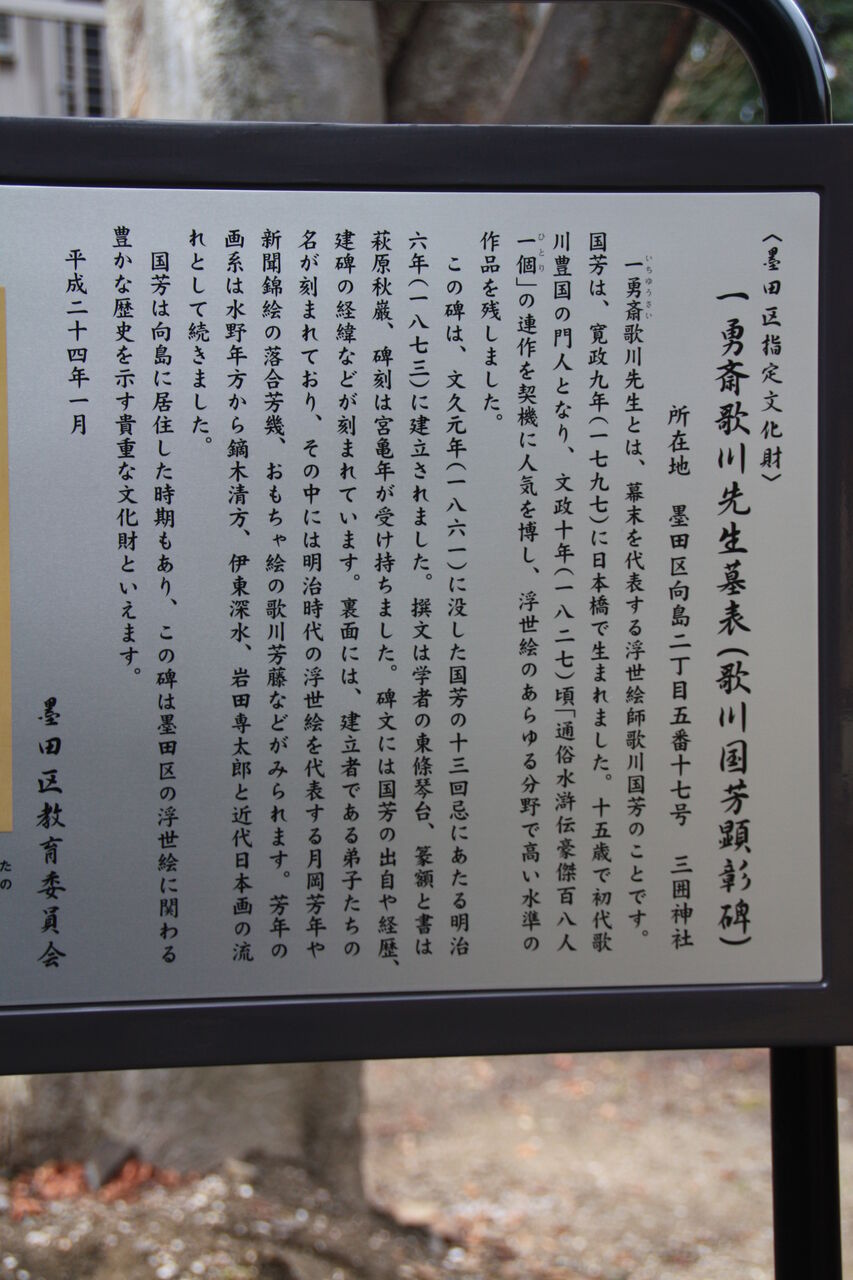 〈墨田区指定文化財〉
一勇斎歌川先生墓表(歌川国芳顕彰碑)
所在地 墨田区向島二丁目五番十七号 三囲神社
いちゆうさい
一勇斎歌川先生とは、幕末を代表する浮世絵師歌川国芳のことです。
国芳は、寛政九年(一七九七)に日本橋で生まれました。十五歳で初代歌
川豊国の門人となり、文政十年(一八二七)頃「通俗水滸伝豪傑百八人
ひとり
一個」の連作を契機に人気を博し、浮世絵のあらゆる分野で高い水準の
作品を残しました。
この碑は、文久元年(一八六一)に没した国芳の十三回忌にあたる明治
六年(一八七三)に建立されました。撰文は学者の東條琴台、篆額と書は
萩原秋巌、碑刻は宮亀年が受け持ちました。碑文には国芳の出自や経歴、
建碑の経緯などが刻まれています。裏面には、建立者である弟子たちの
名が刻まれており、その中には明治時代の浮世絵を代表する月岡芳年や
新聞錦絵の落合芳幾、おもちゃ絵の歌川芳藤などがみられます。芳年の
画系は水野年方から鏑木清方、伊東深水、岩田専太郎と近代日本画の流
れとして続きました。
国芳は向島に居住した時期もあり、この碑は墨田区の浮世絵に関わる
豊かな歴史を示す貴重な文化財といえます。
平成二十四年一月
墨田区教育委員会
たの